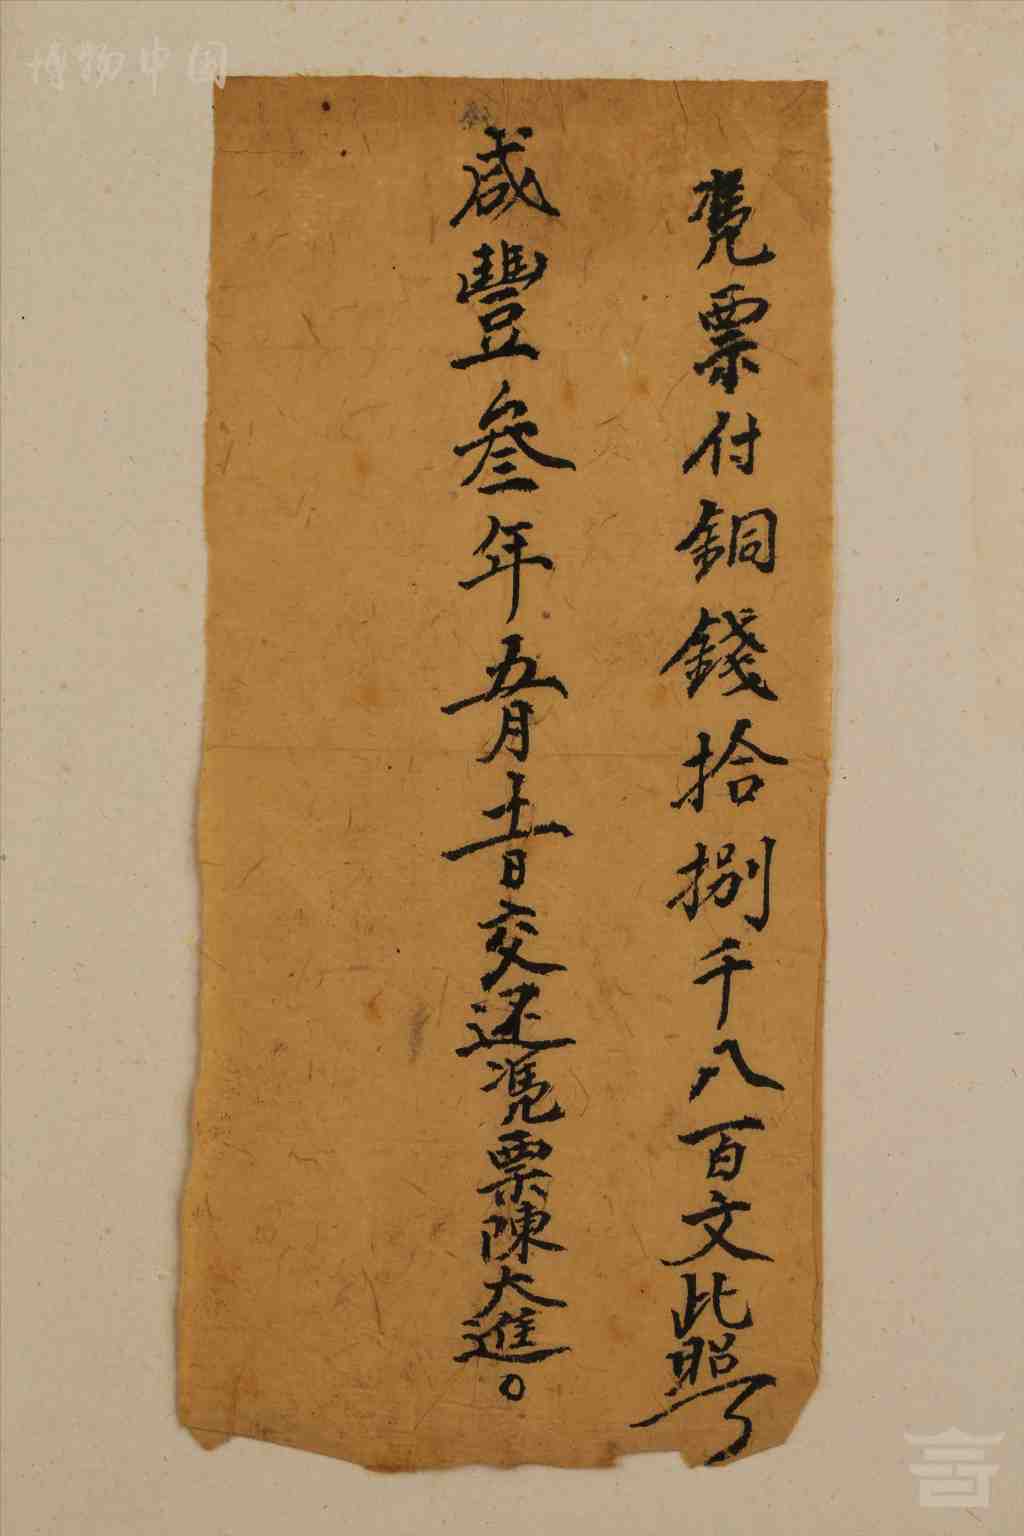 凴票付銅錢拾捌千八百文此照
咸豐叁年五月十一日交還凴票陳大進。
博物中国